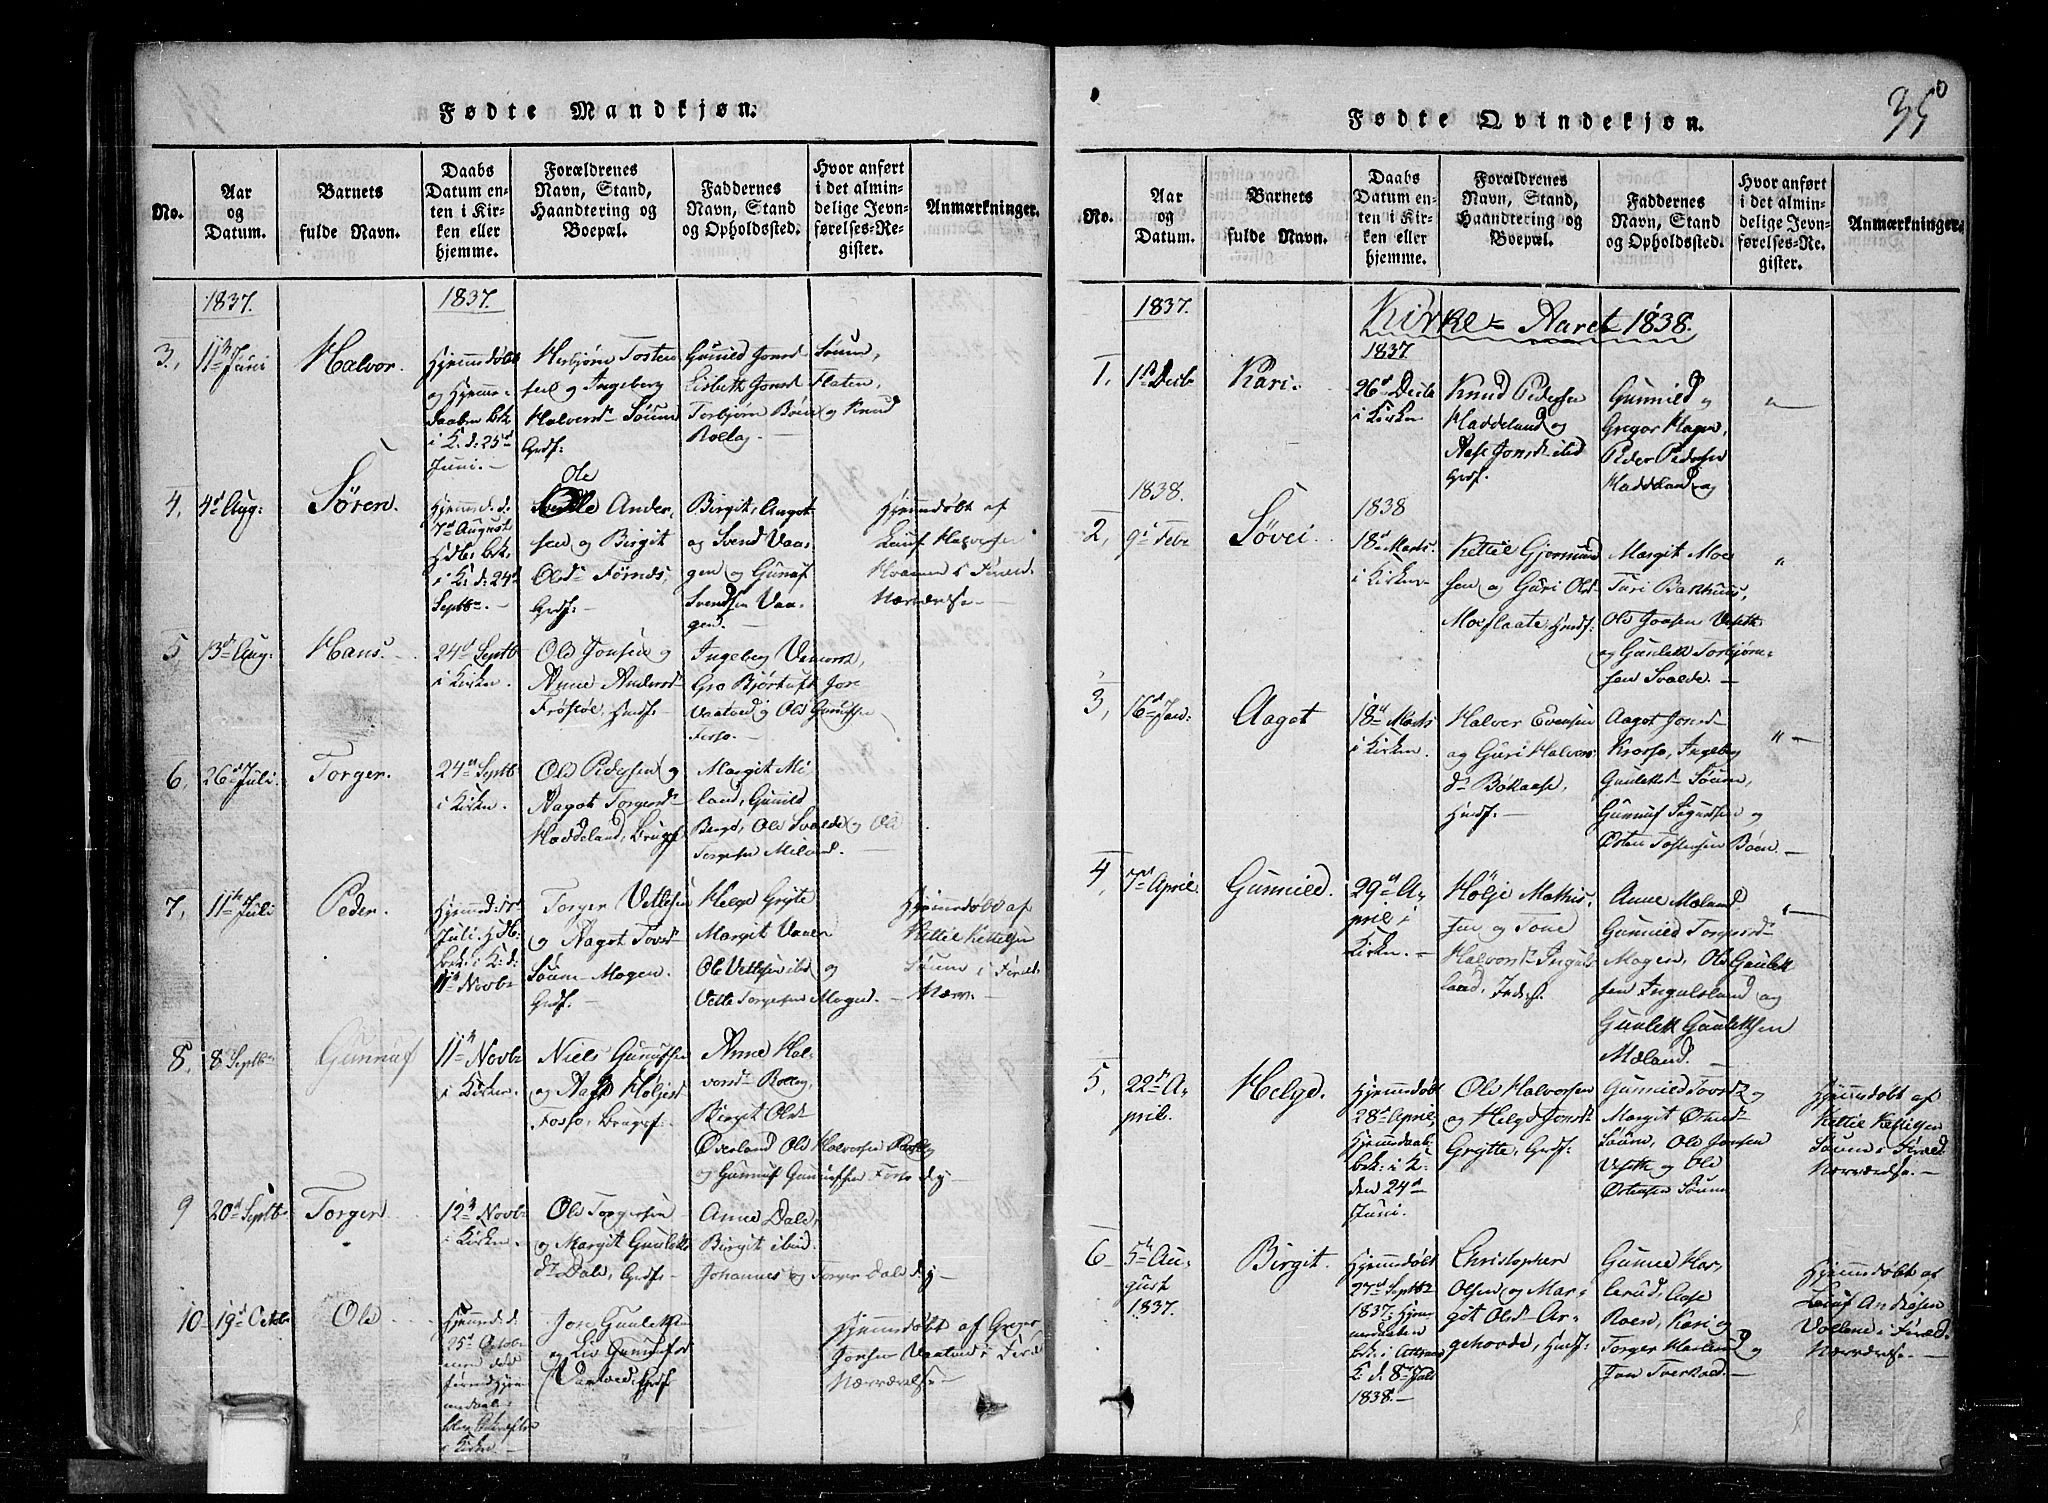 Fødte Mandkjøn.
No.
Aar
og
Datum.
Barnets
fulde Navn.
Daabs
Datum en-
ten i Kir-
ken eller
hjemme.
Forældrenes
Navn, Stand,
Haandtering og
Boepæl.
Faddernes
Navn, Stand
og Opholdssted.
Hvor anført
i det almin-
delige Jevn-
førelses-Re-
gister.
Anmærkninger.
1837.
1837.
3,
11te Juni
Halvor.
Hjemmedøbt
og Hjemme-
daaben bek.
i K. d. 25d
Juni.
Herbjørn Tosten
sen og Ingeberg
Halversd Söum
Grdf.
Gunild Jonsd Söum,
Lisbeth Jonsd Flaten,
Torbjørn Böen og Knud
Rollag.
4,
4d Aug:
Sören.
Hjemmed. d.
7d August
Hdb. bek.
i K. d. 24d
Septbr.
Ole
Ander-
sen og Birgit
Olsd Förnes,
Grdf.
Birgit, Aagot
og Svend Vaa-
gen og Gunuf
Svendsen Vaa-
gen.
Hjemmedøbt af
Leuf Halversen
i Foræld.
Nærværelse.
5
13d Aug.
Hans.
24d Septb
i Kirken.
Ole Jonsen og
Anne Andersd
Fröstöe, Hmdf.
Ingeberg Vemork,
Gro Bjørtuft Jore
Vaatved og Ole Gunufsen
Fosso.
6,
26d Juli.
Torger.
24d Septb
i Kirken.
Ole Pedersen og
Aagot Torgersd
Haddeland, Brugf.
Margit Mi-
land, Gunild
Berge, Ole Svalde og Ole
Torgersen Miland.
7,
11te Juli
Peder.
Hjemmed.
Juli. Hdb.
bek. i K. d.
11te Novbr
Torger Vetlesen
og Aagot Tovsd
Söum-Mogen.
Grdf.
Helge Gryte
Margit Vaaer
Ole Vetlesen ibid og
Vetle Torgersen Mogen.
Hjemmedøbt af
Kettil Kettilsen
Söum i Foræld.
Nærv.
8,
8 Septbr
Gunnuf
11te Novbr
i Kirken.
Niels Gunufsen
og Aase Höljesd
Fosso, Brugsf.
Anne Hal-
vorsd Rollag,
Birgit Olsd
Överland Ole Halvorsen Rollag
og Gunnuf Gunnufsen Fosso
9
20d Septbr
Torger
12te Novbr
i Kirken.
Ole Torgersen
og Margit Gunleks
dr Dale, Grdf.
Anne Dale,
Birgit ibid.
Johannes og Torger Dale
10
19d Octbr
Ole
Hjemmed. d.
25d Octob
i Kirken
Jore Gunleksen
og Liv Gunufsd
Vaatved, Grdf
Hjemmedøbt af Gregor
Jonsen Vaatved i Foræld
Nærværelse.
Fødte Qvindekjøn.
35
No.
Aar
og
Datum.
Barnets
fulde Navn.
Daabs
Datum en-
ten i Kir-
ken eller
hjemme.
Forældrenes
Navn, Stand,
Haandtering og
Boepæl.
Faddernes
Navn, Stand
og Opholdssted.
Hvor anført
i det almin-
delige Jevn-
førelses-Re-
gister.
Anmærkninger.
1837.
Kirke-Aaret 1838.
1837
1,
1ste Decb
Kari.
26d Decb
i Kirken
Knud Pedersen
Haddeland og
Aase Jonsd ibid
Grdf.
Gunnild og
Gregor Hagen,
Peder Pedersen
Haddeland og
1838.
1838
2,
9d Febr
Sövei.
18d Marts
i Kirken
Kettil Gjermund
sen og Guri Olsd
Moeflaate Hmdf.
Margit Moe
Turi Bakhuus,
Ole Joensen Veseth
og Gunlek Torbjørn-
sen Svalde.
3,
16d Jan:
Aagot
18d Marts
i Kirken.
Halver Evensen
og Guri Halvors
dr Bökaase,
Hmdf.
Aagot Jonsd
Krosso, Ingeberg
Gunleksd Söum,
Gunnuf Sigurdsen og
Östen Tostensen Böen.
4,
7d April
Gunnild.
29d A-
pril i
Kirken.
Hölje Mathis-
sen og Tone
Halvorsd Inguls-
land, Inderst.
Anne Mæland
Gunnild Torgersd
Mogen, Ole Gunlek
sen Ingulsland og
Gunlek Gunleksen
Mæland.
5,
22d A-
pril.
Helge.
Hjemmedøbt
28d April
Hjemmedaab.
bek. i K.
den 24d
Juni.
Ole Halvorsen
og Helge Jonsd
Grytte, Grdf.
Gunnild Tovsd
Margit Östensd
Söum, Ole Jonsen
Veseth og Ole
Östensen Söum
Hjemmedøbt af
Kettil Kettilsen
Söum i Foræld.
Nærværelse.
6
5te Au-
gust
1837.
Birgit.
Hjemmedøbt
27d Septbr
1837. Hjem-
medaaben
bek. i
K. d. 8d Juli
1838.
Christopher
Olsen og Mar-
git Olsd Ar-
gehovde, Husf.
Gunne Har-
lerud, Aase
Roen, Kari og
Torger Harland og
Jon Tverberg.
Hjemmedøbt af
Leuf Andersen
Vollene i Foræld.
Nærværelse.